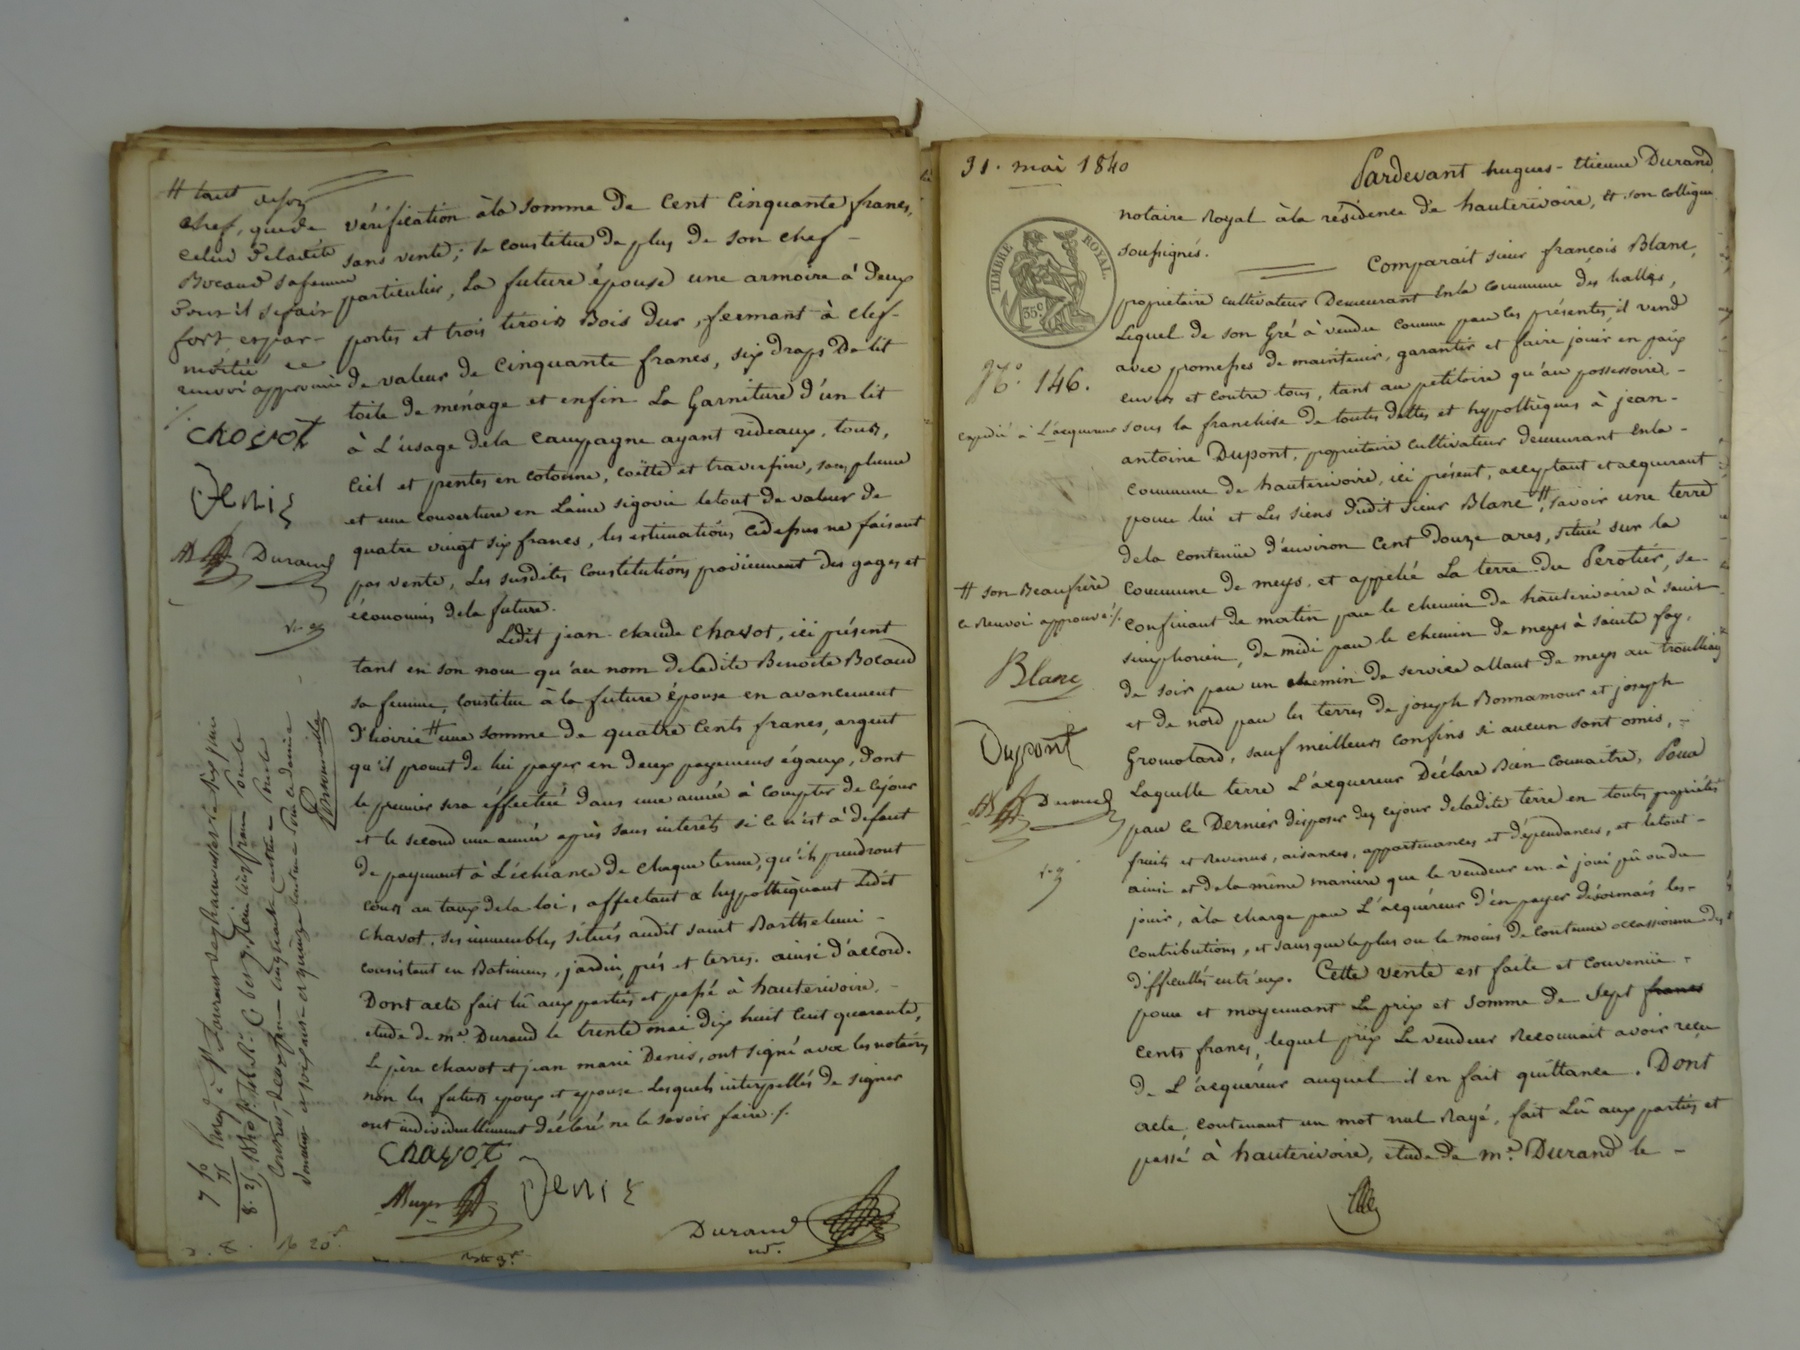 # tant de son
chef, que de
celui de ladite
Bocaud sa femme
pour il se fair
fort en par-
moitié ce
renvoi approuvé
Chavot
Denis
Durand
vérification à la somme de Cent Cinquante francs,
sans vente; se constitue de plus de son chef -
particulier, La future épouse une armoire à deux
portes et trois tiroirs Bois dur, fermant à clef -
de valeur de cinquante francs, six draps De lit
toile de ménage et enfin La Garniture d'un lit
à L'usage de la campagne ayant rideaux, tours,
Ciel et pentes en cotonne, coëtte et traversière, sans plume
et une couverture en Laine sigovie le tout de valeur de
quatre vingt six francs, les estimations cidessus ne faisant
pas vente, Les susdites Constitutions proviennent des gages et
économies dela future.
Ledit jean-claude Chavot, ici présent
tant en son nom qu'au nom deladite Benoite Bocaud
sa femme, Constitue à la future épouse en avancement
d'hoirie # une somme de quatre cents francs, argent
qu'il promet de lui payer en deux payemens égaux, Dont
le premier sera éffectué dans une année à compter de cejour
et le second une année après sans interêts si ce n'est à defaut
de payement à L'échéance de chaque terme, qu'ils prendront
cours au taux dela loi, affectant & hypothèquant Ledit
Chavot, ses immeubles situés audit saint Barthelemi -
consistant en Batimens, jardin, prés et terres. ainsi d'accord.
Dont acte fait lû aux parties et passé à hauterivoire, -
etude de me. Durand le trente mai dix huit cent quarante,
Le père chavot et jean marie Denis, ont signé avec les notaires
non les futurs epoux et epouse Lesquels interpellés de signer
ont individuellement déclaré ne le savoir faire ./.
Chavot
Denis
Durand
nre.
31. mai 1840
Pardevant hugues-Etienne Durand
notaire Royal à la résidence de hauterivoire, et son collègue
soussignés.
TIMBRE ROYAL.
35c
Comparait sieur françois Blanc,
propriétaire cultivateur Demeurant Enla Commune des halles,
Lequel de son Gré à vendu comme par les présentes, il vend
avec promesses de maintenir, garantir et faire jouir en paix
envers et contre tous, tant au petitoire qu'au possessoire, -
sous la franchise de toutes dettes et hypothèques à jean-
No. 146.
expédié à L'acquereur
antoine Dupont, propriétaire cultivateur demeurant Enla -
commune de hauterivoire, ici présent, acceptant et acquerant
pour lui et Les siens dudit sieur Blanc #, savoir une terre
dela contenüe d'environ Cent Douze ares, située sur la
commune de meys, et appelée La terre du Perotier, se-
confinant de matin par le chemin de hauterivoire à saint
simphorien, de midi par le chemin de meys à sainte foy,
de soir par un chemin de service allant de meys au trouilliay
et de nord par les terres de joseph Bonnamour et joseph
Gromolard, sauf meilleurs confins si aucun sont omis, -
# son Beaufrère
ce Renvoi approuvé ./.
Blanc
Dupont
Durand
Laquelle terre L'acquereur Déclare Bien connaitre, Pour
par ce Dernier disposer dez cejour deladite terre en toutes propriétés
fruits et Revenus, aisances, appartenances et dépendances, et letout -
ainsi et dela même maniere que le vendeur en à joui pû ou du
jouir, à la charge par L'acquéreur d'en payer désormais les-
contributions, et sans que le plus ou le moins de contenue occasionne des
difficultés entr'eux. Cette vente est faite et convenüe -
pour et moyennant Le prix et somme de sept francs
cents francs, lequel prix Le vendeur Reconnait avoir reçu
de L'acquéreur auquel il en fait quittance. Dont
acte, contenant un mot nul Rayé, fait Lû aux parties et
passé à hauterivoire, etude de me. Durand le -